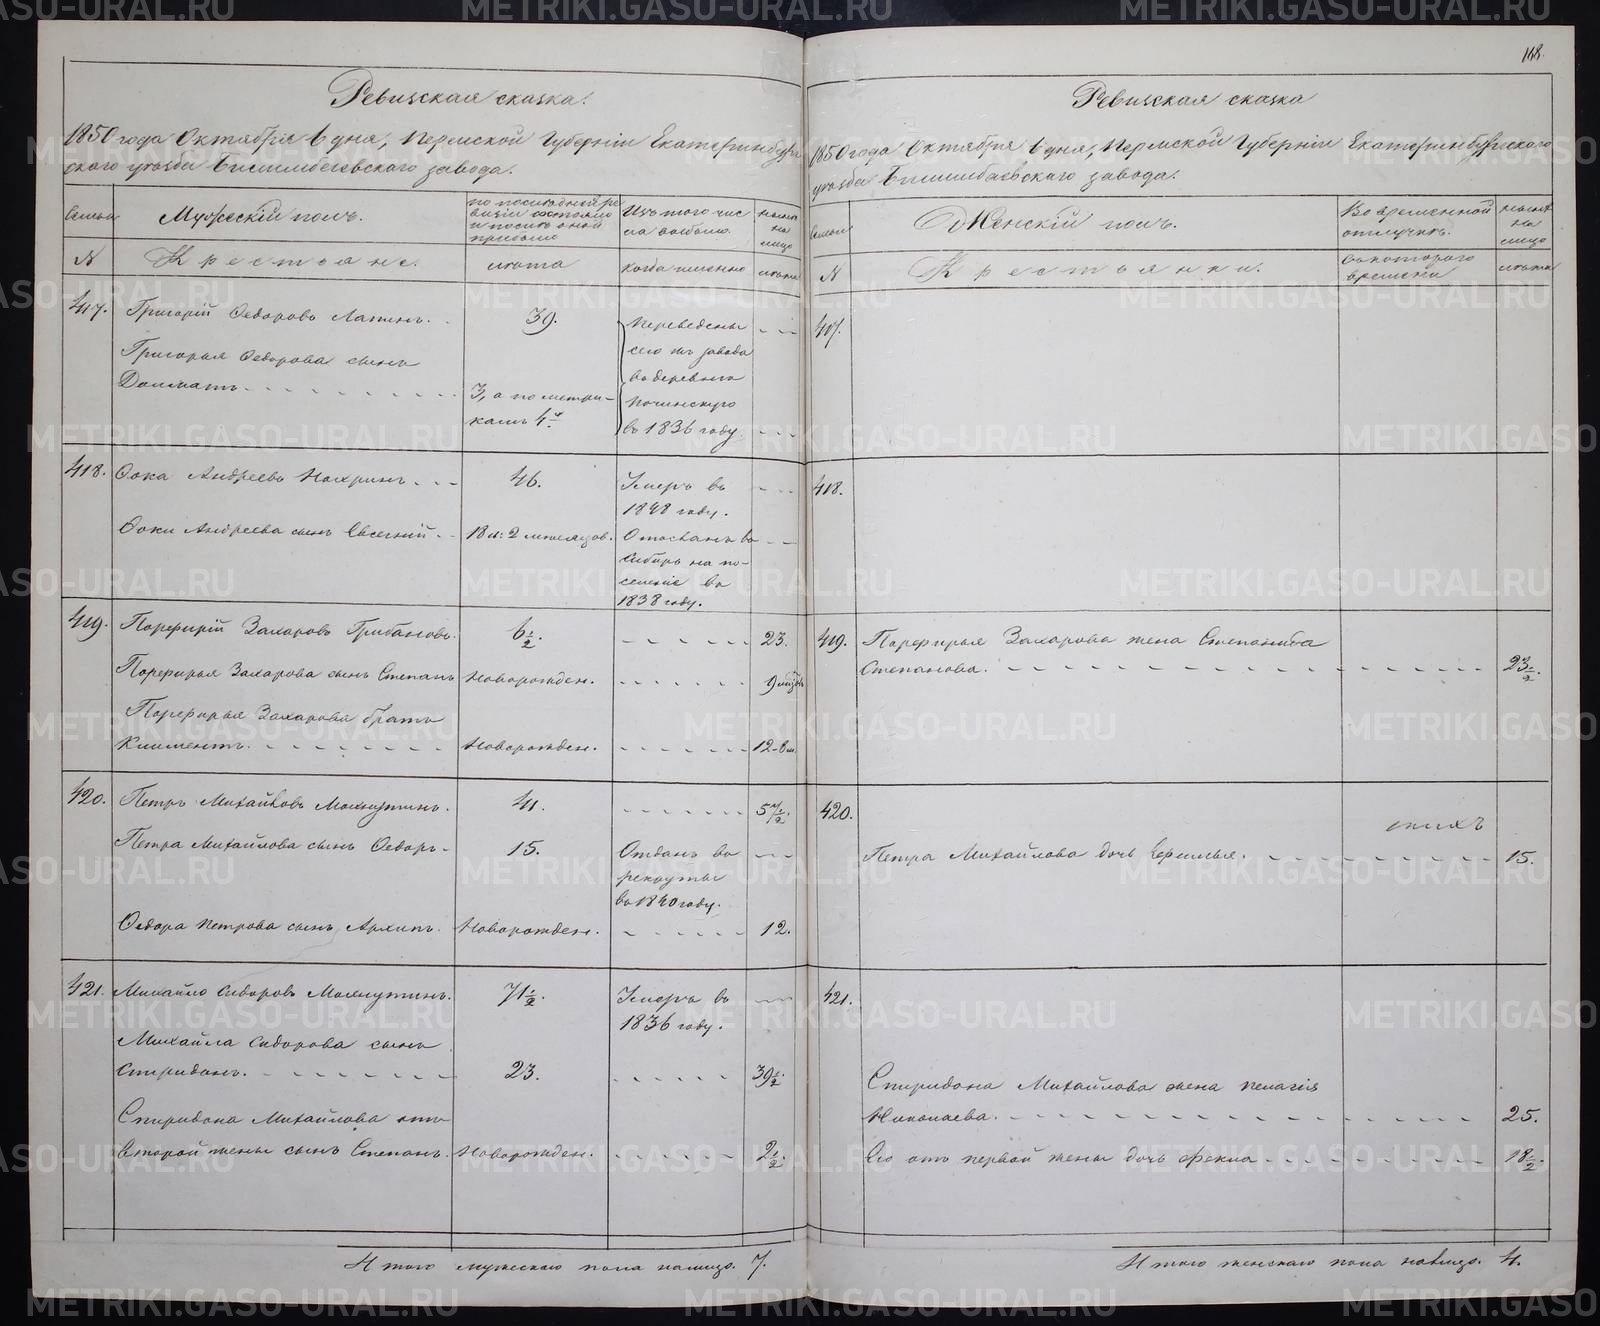 168.
Ревизская сказка.
1850 года Октября 6 дня, Пермской Губерніи Екатеринбург
скаго уѣзда Билимбаевскаго завода.
Семьи
Мужескій полъ.
по послѣдней ре
визіи состояло
и послѣ оной
прибыло
Изъ того чис
ла выбыло.
нынѣ
на
лицо
№
Крестьяне.
лѣта
когда именно
лѣта
417.
Григорій Ѳедоровъ Лапинъ.
39.
Переведены
сего жъ завода
въ деревню
Починскую
въ 1836 году.
Григорья Ѳедорова сынъ
Долматъ.
3, а по метри-
камъ 4
418.
Ѳока Андреевъ Нохринъ.
46.
Умеръ въ
1848 году.
Ѳоки Андреева сынъ Евсегній.
18 л: 2 мѣсяцов.
Отосланъ въ
Сибирь на по-
селеніе въ
1838 году.
419.
Порфирій Захаровъ Грибановъ.
6 1/2.
23.
Порфирья Захарова сынъ Степанъ
Новорожден.
9 мѣсѣ
Порфирья Захарова братъ
Климентъ.
Новорожден.
12-8 м.
420.
Петръ Михайловъ Мохнутинъ.
41.
57 1/2.
Петра Михайлова сынъ Ѳедоръ
15.
Отданъ въ
рекруты
въ 1840 году.
Ѳедора Петрова сынъ Архипъ.
Новорожден.
12.
421.
Михайло Сидоровъ Мохнутинъ.
71 1/2.
Умеръ въ
1836 году.
Михайла Сидорова сынъ
Спиридонъ.
23.
39 1/2.
Спиридона Михайлова отъ
второй жены сынъ Степанъ.
Новорожден.
2 1/2.
Итого мужескаго пола налицо. 7.
Ревизская сказка
1850 года Октября 6 дня, Пермской Губерніи Екатеринбургскаго
уѣзда Билимбаевскаго завода.
Семьи
Женскій полъ.
Во временной
отлучкѣ.
нынѣ
на
лицо
№
Крестьянки.
съ котораго
времени
лѣта
417.
418.
419.
Порфирья Захарова жена Степанида
Степанова.
23 1/2.
420.
Петра Михайлова дочь Еремѣя.
15.
421.
Спиридона Михайлова жена Пелагія
Николаева.
25.
Его отъ первой жены дочь Ѳекла
18 1/2.
Итого женскаго пола налицо. 4.
METRIKI.GASO-URAL.RU